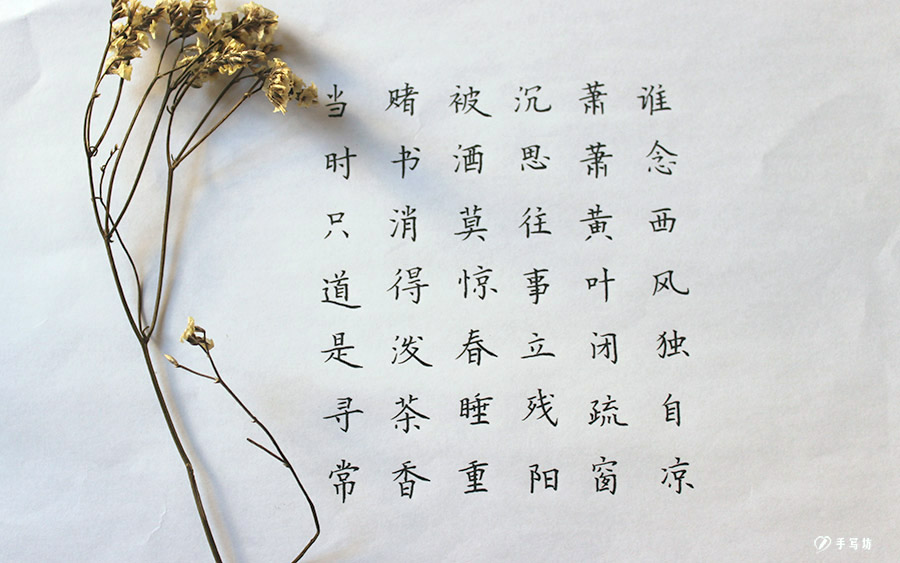 谁念西风独自凉
萧萧黄叶闭疏窗
沉思往事立残阳
被酒莫惊春睡重
赌书消得泼茶香
当时只道是寻常
手写坊